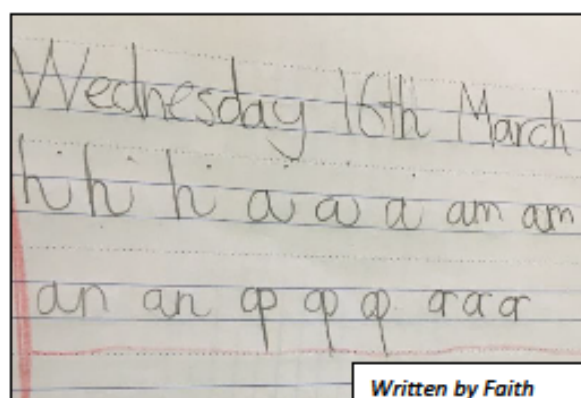 Wednesday 16th March
h h h a a a am am
an an ap ap ap ar ar ar
Written by Faith